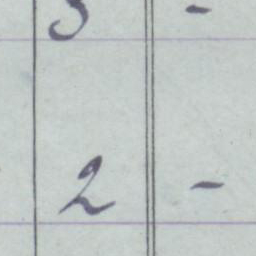 5 -
2 -